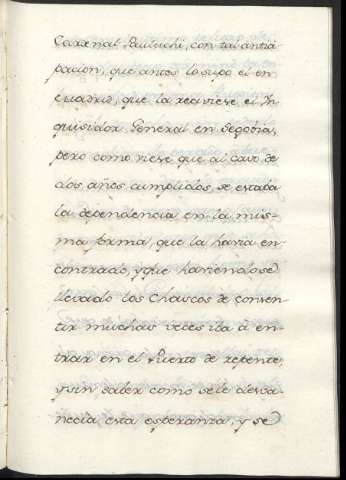 Cardenal Pauluchi, con tal antici
pacion, que antes lo supo él en
cuadrid, que la reciviese el In
quisidor General en Segobia,
pero como viese que al cavo de
dos años cumplidos, se estaba
la dependencia en la mis-
ma forma, que la havia en-
contrado, y que haviendose
llevado los Chascos de consen-
tir muchas veces iba à en-
trar en el Puerto de repente,
y sin saber como se le desva-
necia esta esperanza, y se